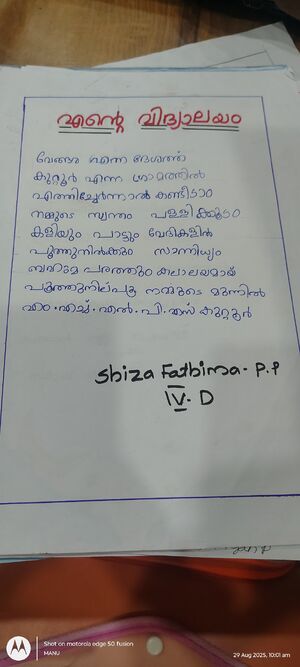 എന്റെ വിദ്യാലയം
വേങ്ങര എന്ന ദേശത്ത്
കുറ്റൂർ എന്ന ഗ്രാമത്തിൽ
എത്തിച്ചേർന്നാൽ കണ്ടീടാം
നമ്മുടെ സ്വന്തം പള്ളിക്കൂടം
കളിയും പാട്ടും വേദികളിൽ
പൂത്തുനിൽക്കും സാന്നിധ്യം
പരത്തും കലാലയമായ്
നമ്മുടെ മുന്നിൽ
എം.എച്ച്.എൽ.പി.എസ് കുറ്റൂർ
Shiza Fathima. P.P
IV. D
Shot on motorola edge 50 fusion
MANU
29 Aug 2025, 10:01 am